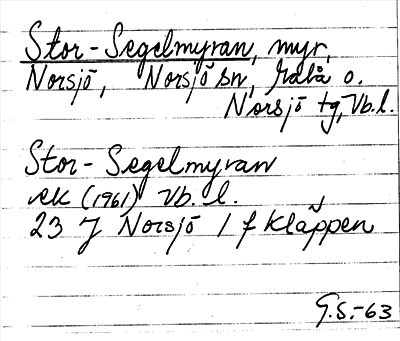 Stor-Segelmyran, myr,
Norsjö, Norsjö sn, Malå o.
Norsjö tg, Vb.l.
Stor-Segelmyran
ek (1961) Vb. l.
23 J Norsjö 1 f Kläppen
G.S.-63